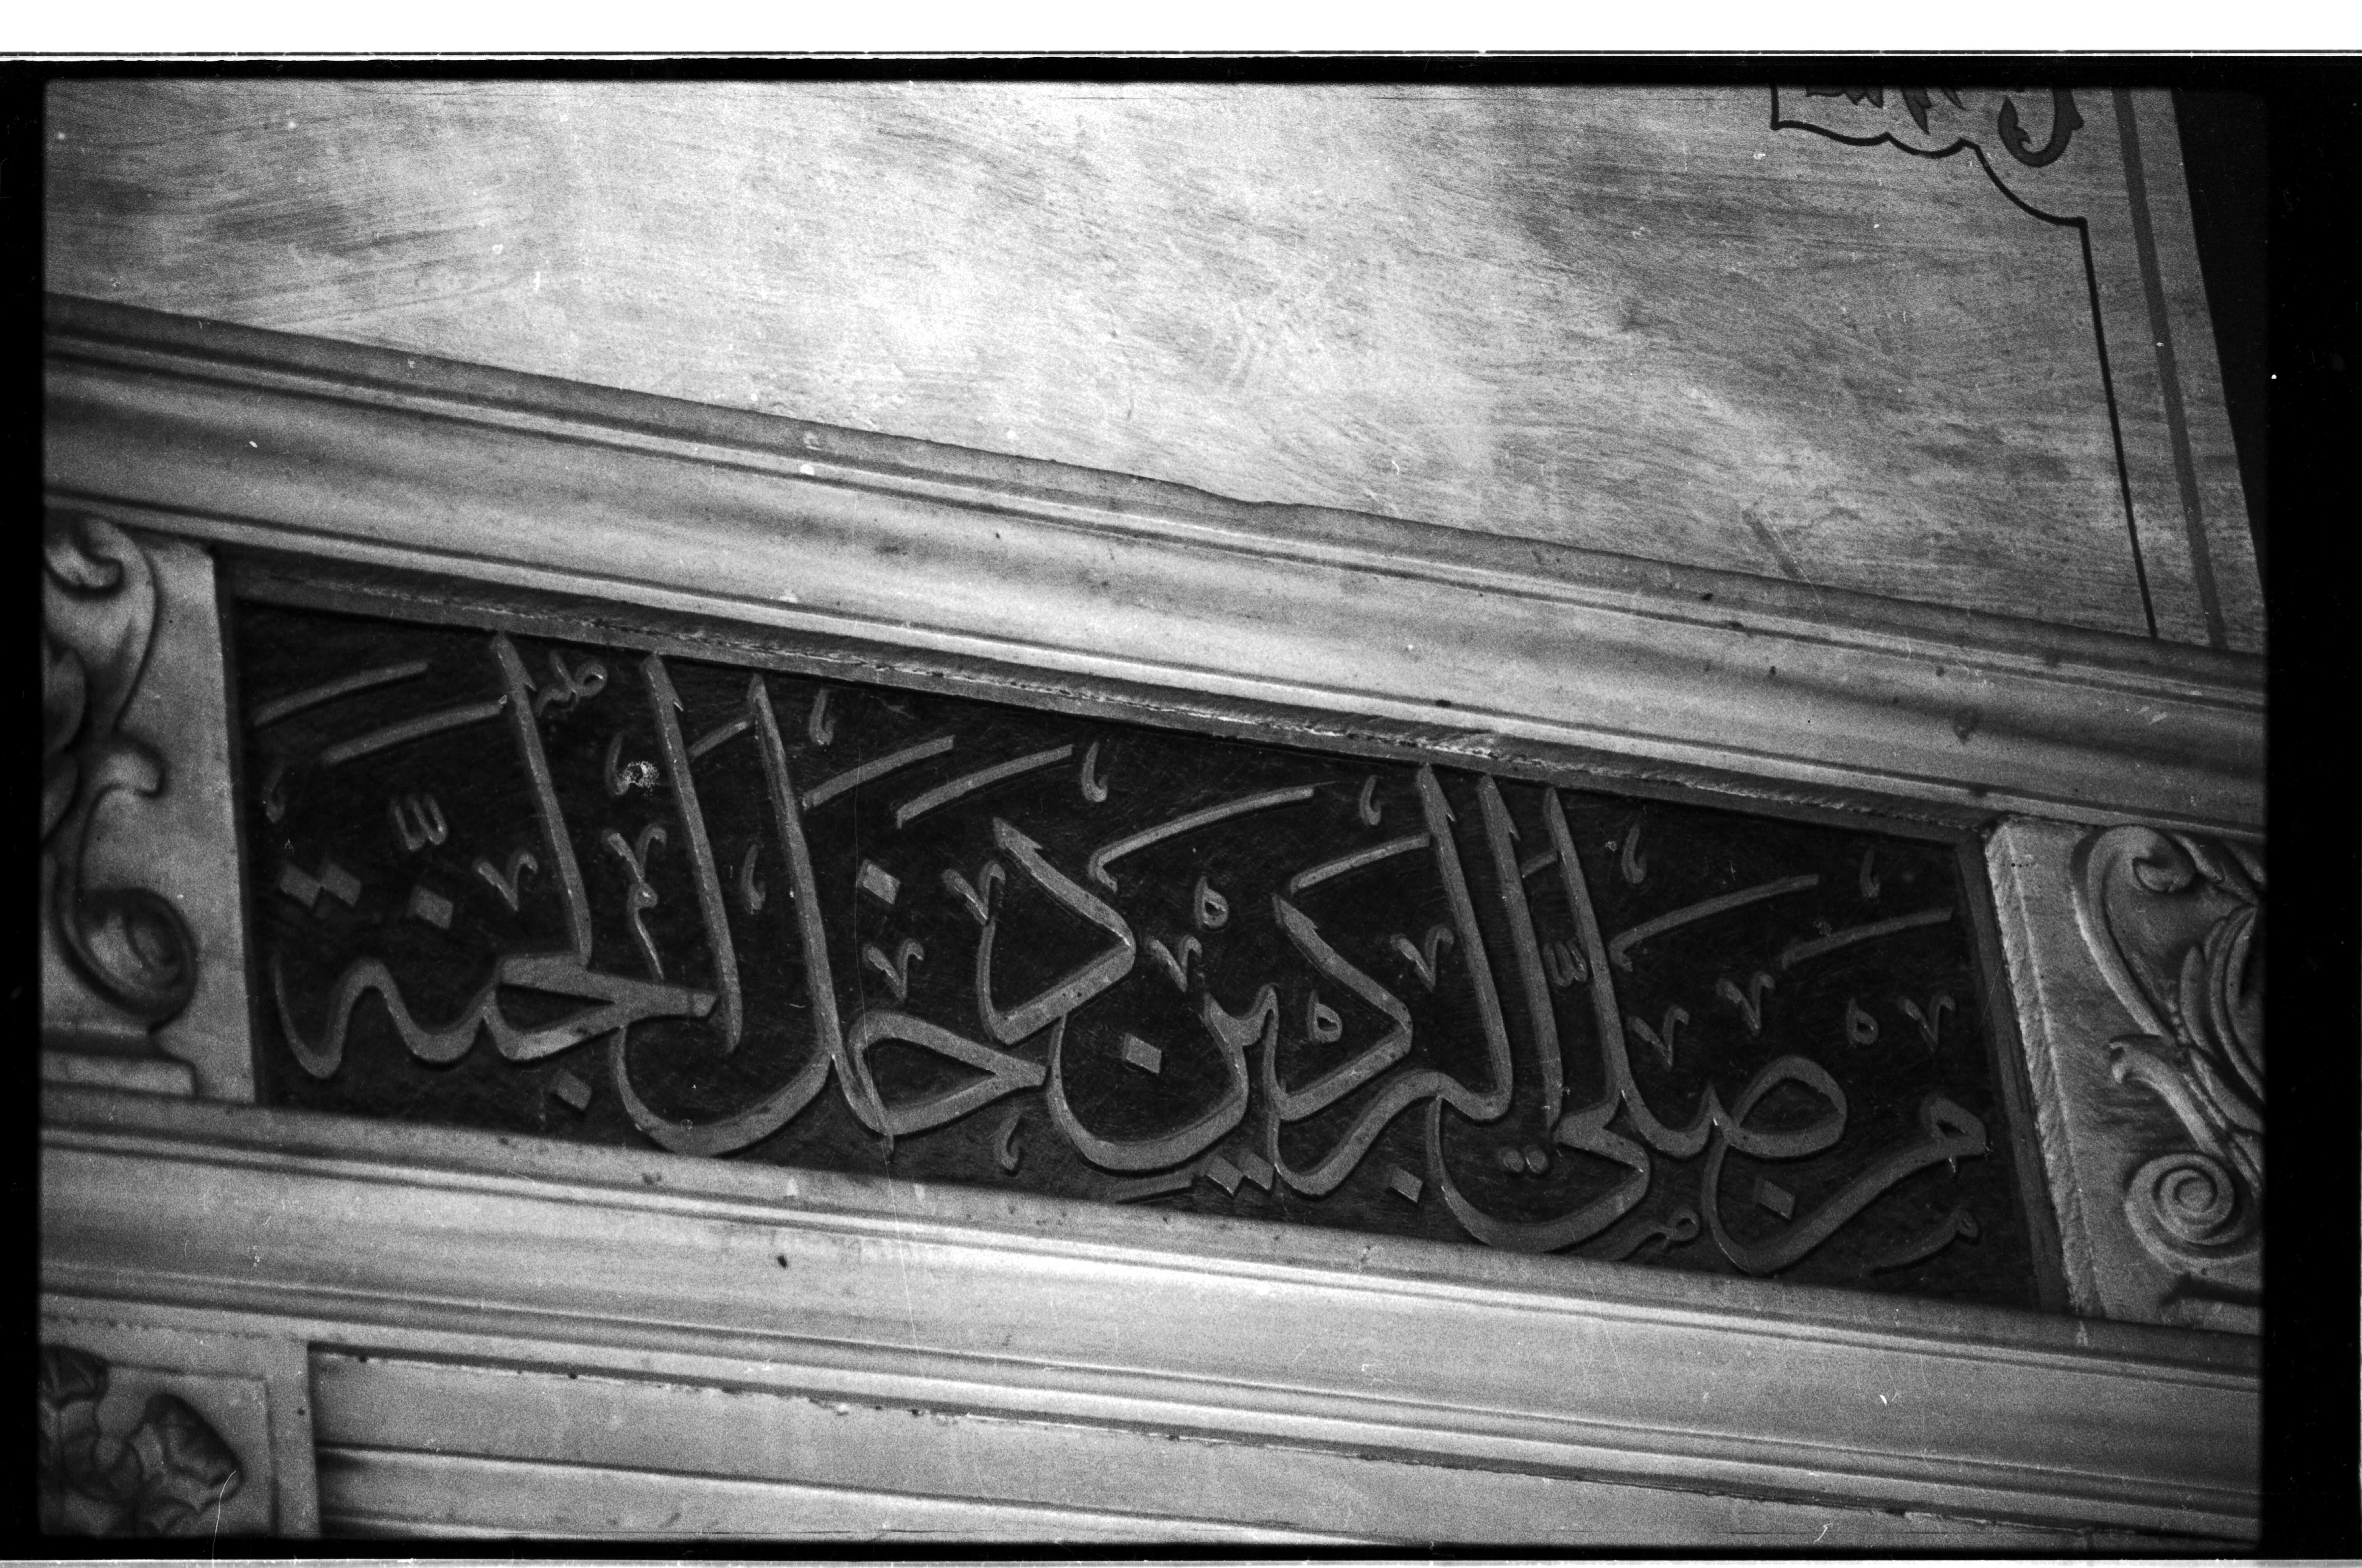 مَنْ صَلَّى الْبَرْدَيْنِ دَخَلَ الْجَنَّةَ